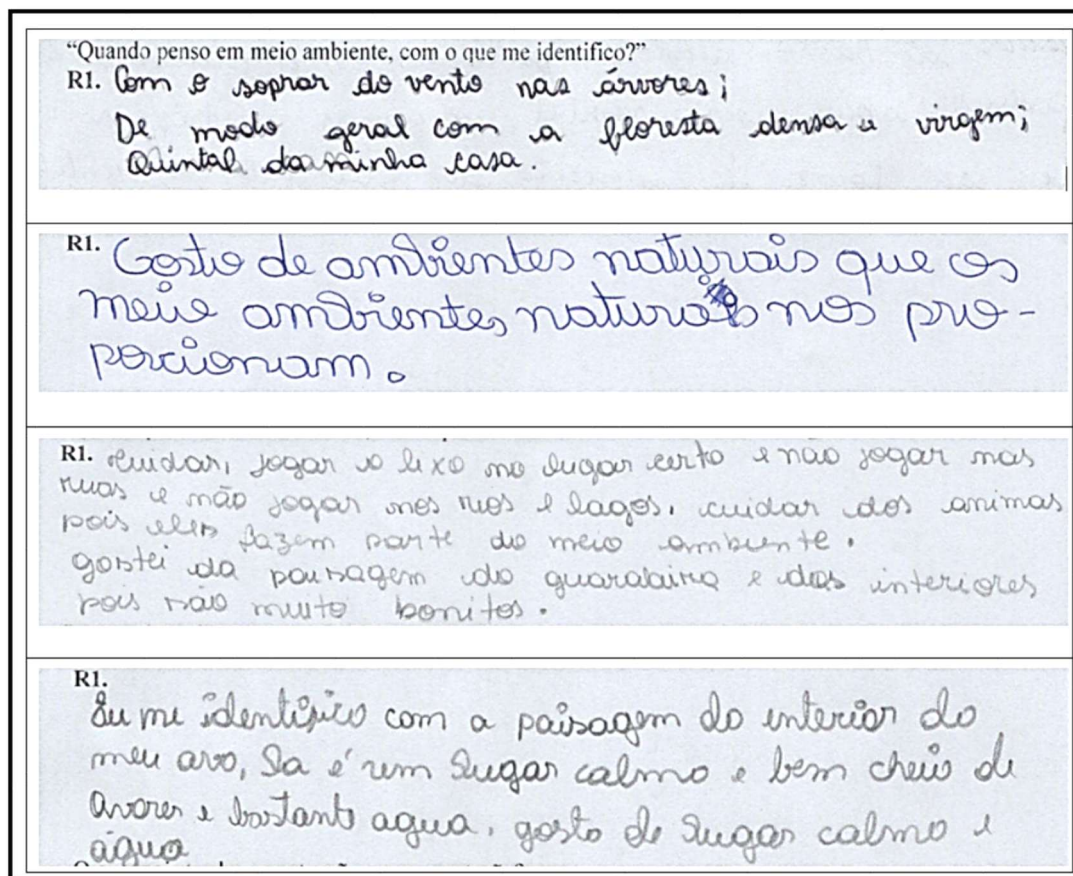 “Quando penso em meio ambiente, com o que me identifico?”
R1. Com o soprar do vento nas árvores;
De modo geral com a floresta densa e virgem;
Quintal da minha casa.
R1. Gosto de ambientes naturais que os
meus ambientes naturais nos pro-
porcionam.
R1. cuidar, jogar o lixo no lugar certo e não jogar nas
ruas e não jogar nos rios e lagos, cuidar dos animas
pois eles fazem parte do meio ambiente.
gostei da paisagem do e das interiores
pois são muito bonitos.
R1.
Eu me identifico com a paisagem do interior do
meu avo, la é um lugar calmo e bem cheio de
avores e bastante agua, gosto de lugar calmo e
água